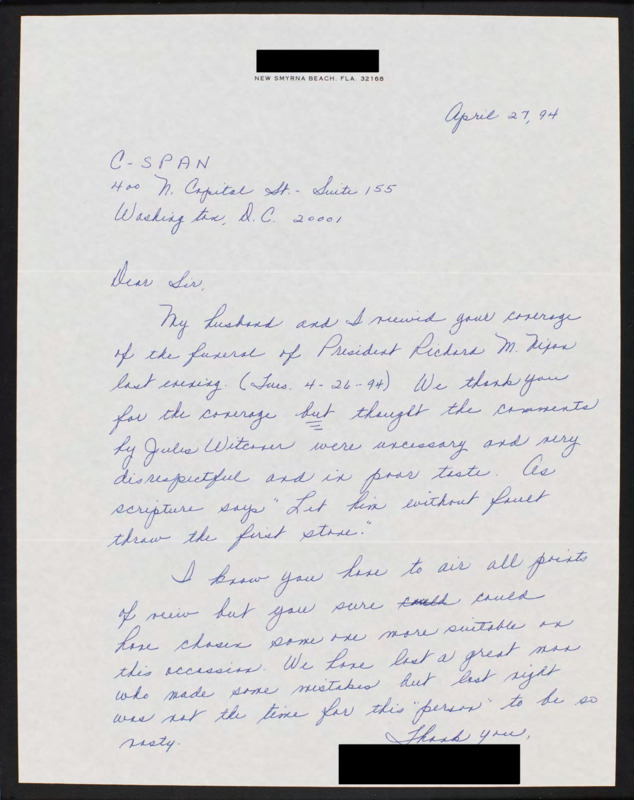 NEW SMYRNA BEACH, FLA. 32168
April 27, 94
C-SPAN
400 N. Capital St. - Suite 155
Washington, D.C. 20001
Dear Sir,
My husband and I viewed your coverage
of the funeral of President Richard M. Nixon
last evening. (Tues. 4-26-94) We thank you
for the coverage but thought the comments
by Jules Witcover were uncessary and very
disrespectful and in poor taste. As
scripture says "Let him without fault
throw the first stone."
I know you have to air all points
of view but you sure could could
have chosen some one more suitable on
this occassion. We have lost a great man
who made some mistakes but last night
was not the time for this "person" to be so
nasty.
Thank you,